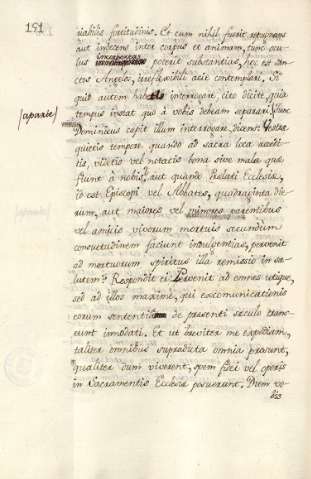 191
viabilis fortitudinis. Et cum nihil fuerit repugnans
aut infectens inter corpus et animam, tunc ocu-
lus incorporeas poterit substantias, hoc est san-
ctos Angelos, irreflexibili acie contemplari. Si
quid autem habes interrogare, cito dicite, quia
tempus instat quo à vobis debeam separari. Tunc
[aparte]
Dominicus cepit illum interrogare, dicens: Vestræ
quietis tempore quando ad sacra loca acceditis,
vigetis vel notatis bona sive mala quæ
fiunt à nobis, aut quando Prelati Ecclesiæ,
id est Episcopi vel Abbates, quadraginta die-
rum, aut maiores vel minores parentibus
vel amicis vivorum mortuis secundum
consuetudinem faciunt indulgentias, pervenit
ad mortuorum spiritus illa remissio in sa-
lutem? Respondit ei: Pervenit ad omnes utique,
sed ad illos maxime, qui excomunicationis
eorum sententiâ de presenti sæculo trans-
eunt innodati. Et ut breviter me expediam,
taliter omnibus supradicta omnia prosunt,
qualiter dum viverent, spem fidei vel operis
in Sacramentis Ecclesiæ posuerunt. Diem vo-
bis